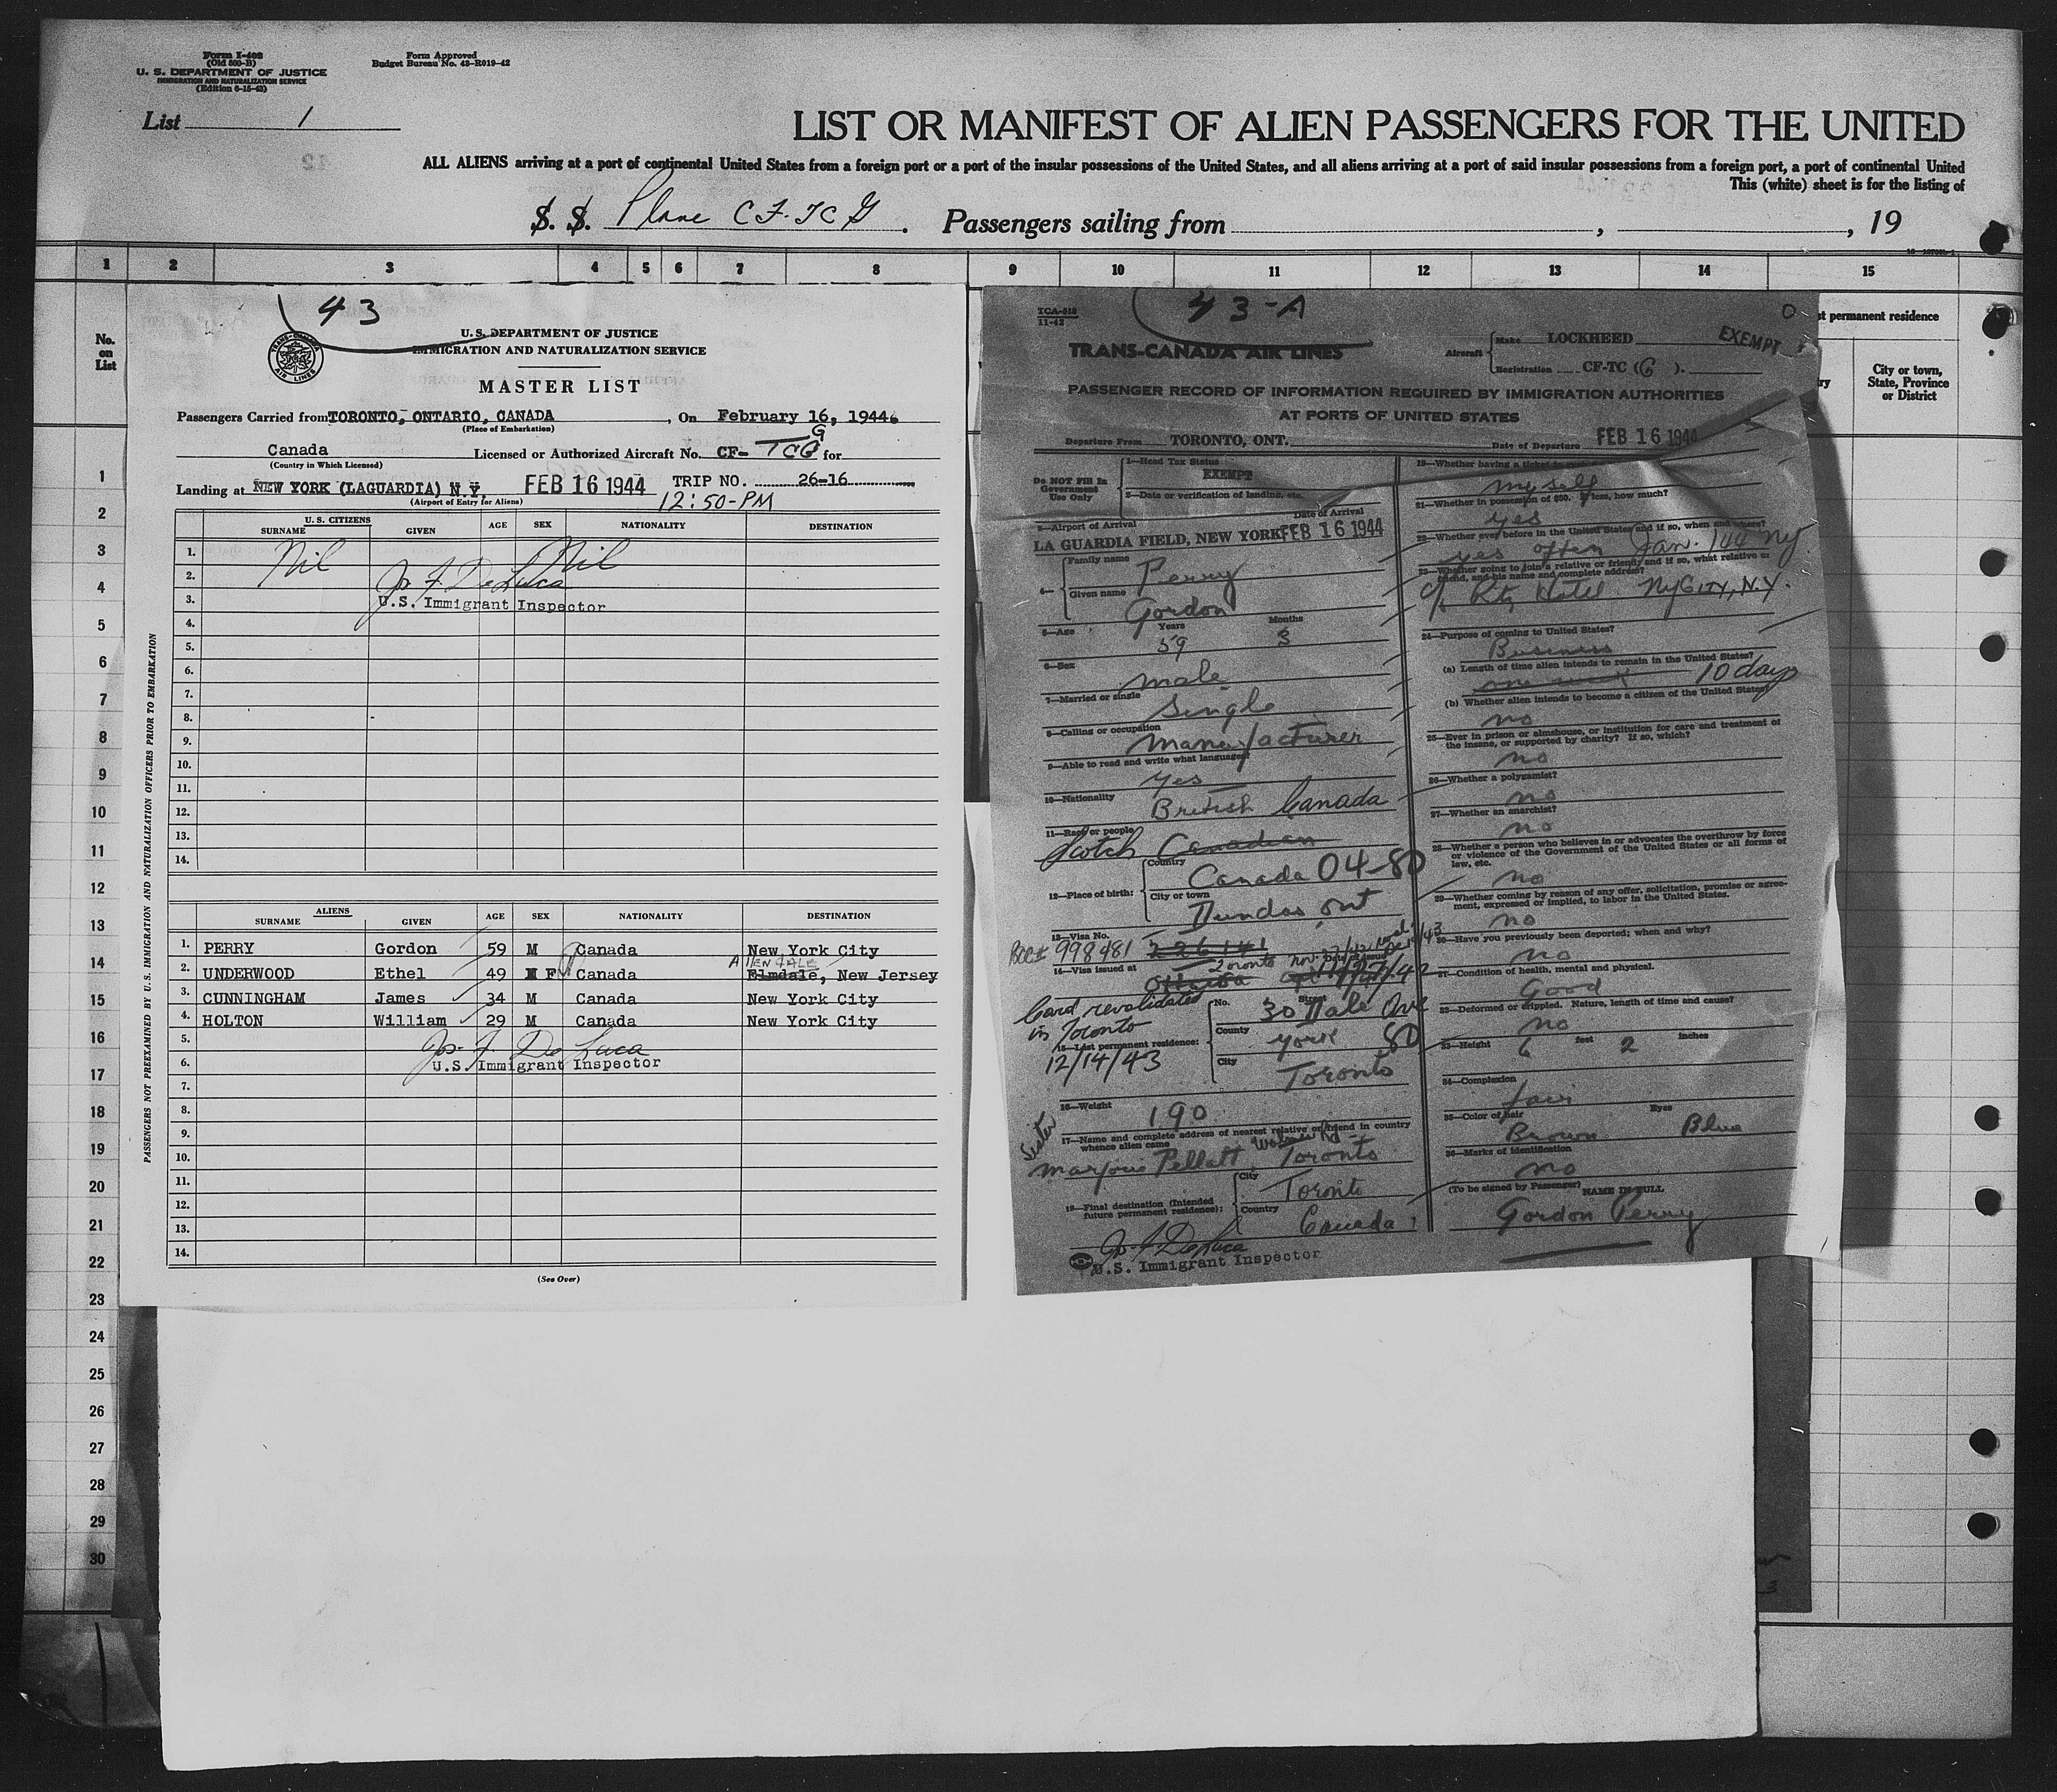 Form I-408
(Old 500-B)
U. S. DEPARTMENT OF JUSTICE
IMMIGRATION AND NATURALIZATION SERVICE
(Edition 6-15-43)
Form Approved
Budget Bureau No. 43-R019-42
List 1
LIST OR MANIFEST OF ALIEN PASSENGERS FOR THE UNITED
ALL ALIENS arriving at a port of continental United States from a foreign port or a port of the insular possessions of the United States, and all aliens arriving at a port of said insular possessions from a foreign port, a port of continental United
This (white) sheet is for the listing of
S. S. Plane CF. TC G. Passengers sailing from , , 19
1 2 3 4 5 6 7 8 9 10 11 12 13 14 15
No. on List
t permanent residence
City or town, State, Province or District
1
2
3
4
5
6
7
8
9
10
11
12
13
14
15
16
17
18
19
20
21
22
23
24
25
26
27
28
29
30
43
TRANS-CANADA AIR LINES
U. S. DEPARTMENT OF JUSTICE
IMMIGRATION AND NATURALIZATION SERVICE
MASTER LIST
Passengers Carried from TORONTO, ONTARIO, CANADA, On February 16, 1944.
(Place of Embarkation)
Canada Licensed or Authorized Aircraft No. CF- TCG G for
(Country in Which Licensed)
Landing at NEW YORK (LAGUARDIA) N.Y. FEB 16 1944 TRIP NO. 26-16
(Airport of Entry for Aliens) 12:50-PM
U.S. CITIZENS
SURNAME GIVEN AGE SEX NATIONALITY DESTINATION
1. Nil Nil
2. Jos. F. DeLuca
3. U.S. Immigrant Inspector
4.
5.
6.
7.
8.
9.
10.
11.
12.
13.
14.
ALIENS
SURNAME GIVEN AGE SEX NATIONALITY DESTINATION
1. PERRY Gordon 59 M Canada New York City
ALLENDALE
2. UNDERWOOD Ethel 49 M F Canada Elmdale, New Jersey
3. CUNNINGHAM James 34 M Canada New York City
4. HOLTON William 29 M Canada New York City
5. Jos. F. DeLuca
6. U.S. Immigrant Inspector
7.
8.
9.
10.
11.
12.
13.
14.
(See Over)
PASSENGERS NOT PREEXAMINED BY U.S. IMMIGRATION AND NATURALIZATION OFFICERS PRIOR TO EMBARKATION
43-A
TCA-518
11-42
TRANS-CANADA AIR LINES
Aircraft Make LOCKHEED
Registration CF-TC (G ).
EXEMPT
PASSENGER RECORD OF INFORMATION REQUIRED BY IMMIGRATION AUTHORITIES
AT PORTS OF UNITED STATES
Departure From TORONTO, ONT. Date of Departure FEB 16 1944
Do NOT Fill In Government Use Only
1—Head Tax Status
EXEMPT
2—Date or verification of landing, etc.
3—Airport of Arrival Date of Arrival
LA GUARDIA FIELD, NEW YORK FEB 16 1944
4— Family name Perry
Given name Gordon
5—Age Years 59 Months 3
6—Sex male
7—Married or single Single
8—Calling or occupation Manufacturer
9—Able to read and write what language? Yes
10—Nationality British Canada
11—Race or people Scotch Canadian
12—Place of birth: Country Canada 04-80
City or town Dundas Ont
13—Visa No.
BCC# 998481 226141
14—Visa issued at Toronto Ottawa
Card revalidated in Toronto 12/14/43
15—Last permanent residence: No. Street 30 Dale Ave
County York 80
City Toronto
16—Weight 190
17—Name and complete address of nearest relative or friend in country whence alien came
Sister Marjorie Pellatt Walmer Rd Toronto
18—Final destination (Intended future permanent residence): City Toronto
Country Canada
Jos. F. DeLuca
U.S. Immigrant Inspector
19—Whether having a ticket to
myself
21—Whether in possession of $50. If less, how much?
yes
22—Whether ever before in the United States and if so, when and where?
yes often Jan. 144 NY
23—Whether going to join a relative or friend; and if so, what relative or friend, and his name and complete address?
c/o Ritz Hotel NY CITY, N.Y.
24—Purpose of coming to United States?
Business
(a) Length of time alien intends to remain in the United States?
one week 10 days
(b) Whether alien intends to become a citizen of the United States?
no
25—Ever in prison or almshouse, or institution for care and treatment of the insane, or supported by charity? If so, which?
no
26—Whether a polygamist?
no
27—Whether an anarchist?
no
28—Whether a person who believes in or advocates the overthrow by force or violence of the Government of the United States or all forms of law, etc.
no
29—Whether coming by reason of any offer, solicitation, promise or agreement, expressed or implied, to labor in the United States.
no
30—Have you previously been deported; when and why?
no
31—Condition of health, mental and physical.
Good
32—Deformed or crippled. Nature, length of time and cause?
no
33—Height 6 feet 2 inches
34—Complexion
fair
35—Color of hair Eyes
Brown Blue
36—Marks of identification
no
(To be signed by Passenger) NAME IN FULL
Gordon Perry